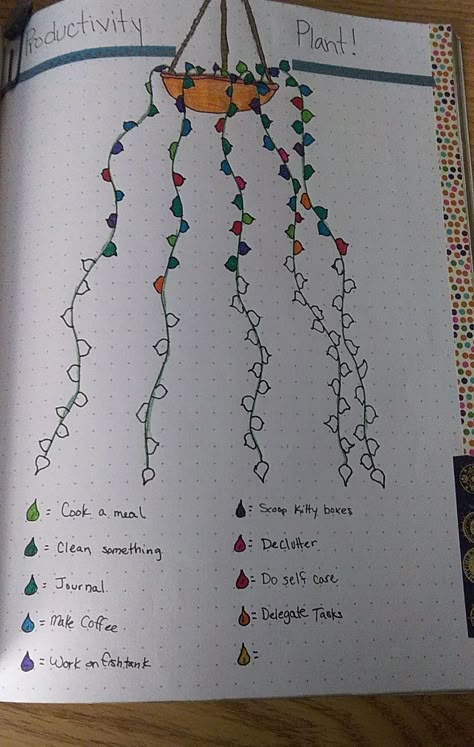 Productivity Plant!
= Cook a meal
= Clean something
= Journal.
= Make Coffee.
= Work on fishtank
= Scoop Kitty boxes
= Declutter
= Do self care
= Delegate Tasks
=